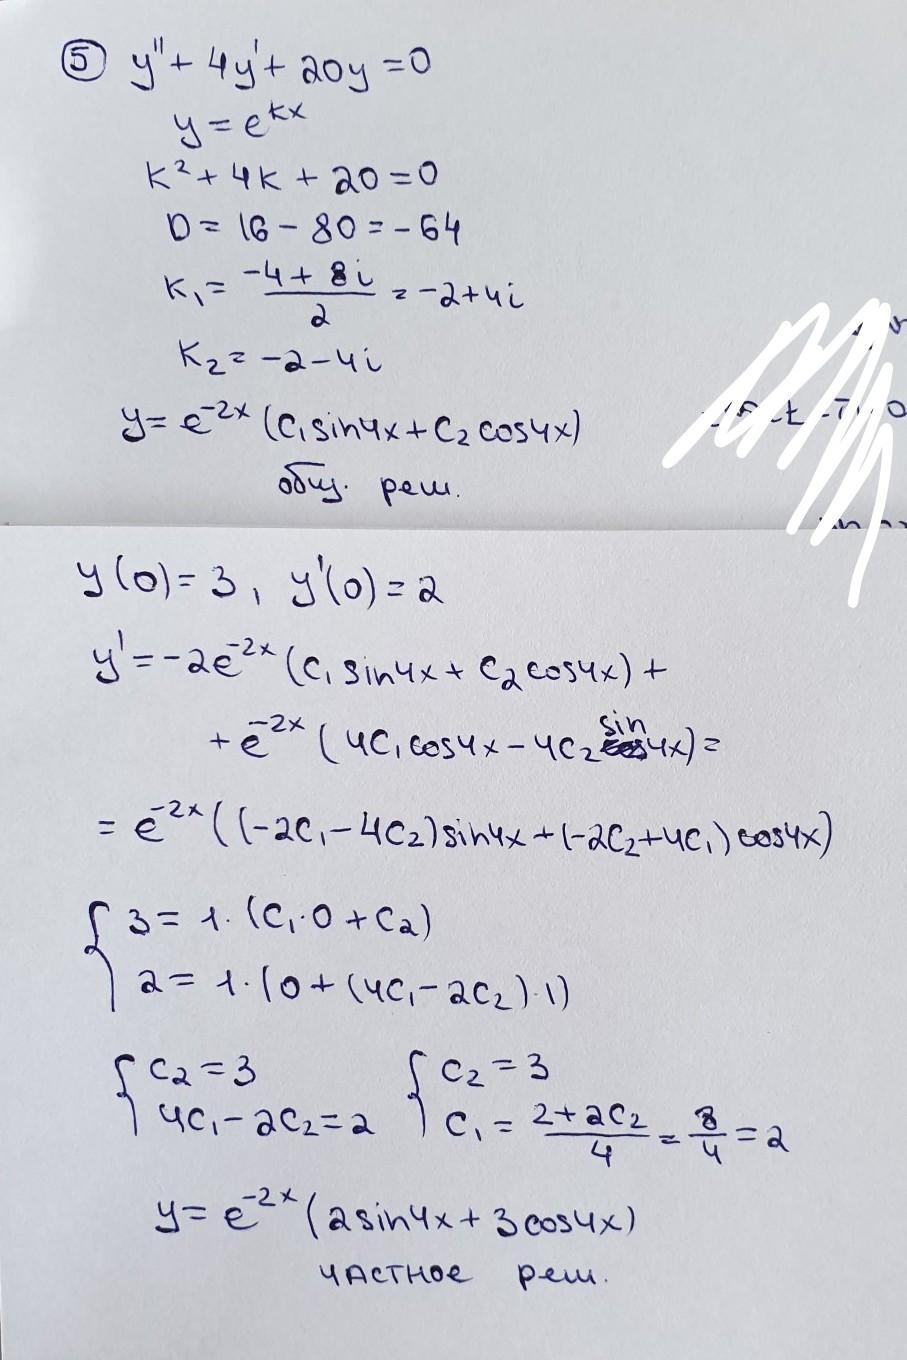 ⑤ y'' + 4y' + 20y = 0
y = e^{kx}
k² + 4k + 20 = 0
D = 16 - 80 = -64
k₁ = \frac{-4 + 8i}{2} = -2 + 4i
k₂ = -2 - 4i
y = e^{-2x} (C₁ sin4x + C₂ cos4x)
общ. реш.
y(0) = 3, y'(0) = 2
y' = -2e^{-2x} (C₁ sin4x + C₂ cos4x) +
+ e^{-2x} (4C₁ cos4x - 4C₂ sin4x) =
= e^{-2x} ((-2C₁ - 4C₂) sin4x + (-2C₂ + 4C₁) cos4x)
{ 3 = 1·(C₁·0 + C₂)
2 = 1·(0 + (4C₁ - 2C₂)·1)
{ C₂ = 3 { C₂ = 3
4C₁ - 2C₂ = 2 C₁ = \frac{2 + 2C₂}{4} = \frac{8}{4} = 2
y = e^{-2x} (2 sin4x + 3 cos4x)
частное реш.